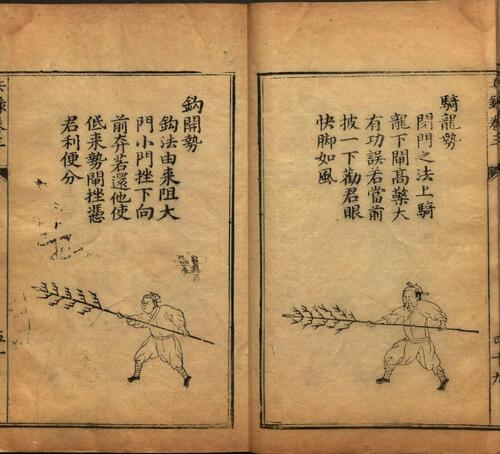 騎龍勢
閉門之法上騎
龍下閘高檠大
有功誤若當前
披一下勸君眼
快脚如風
鈎開勢
鈎法由来阻大
門小門挫下向
前弃若還他使
低来勢閘挫憑
君利便分